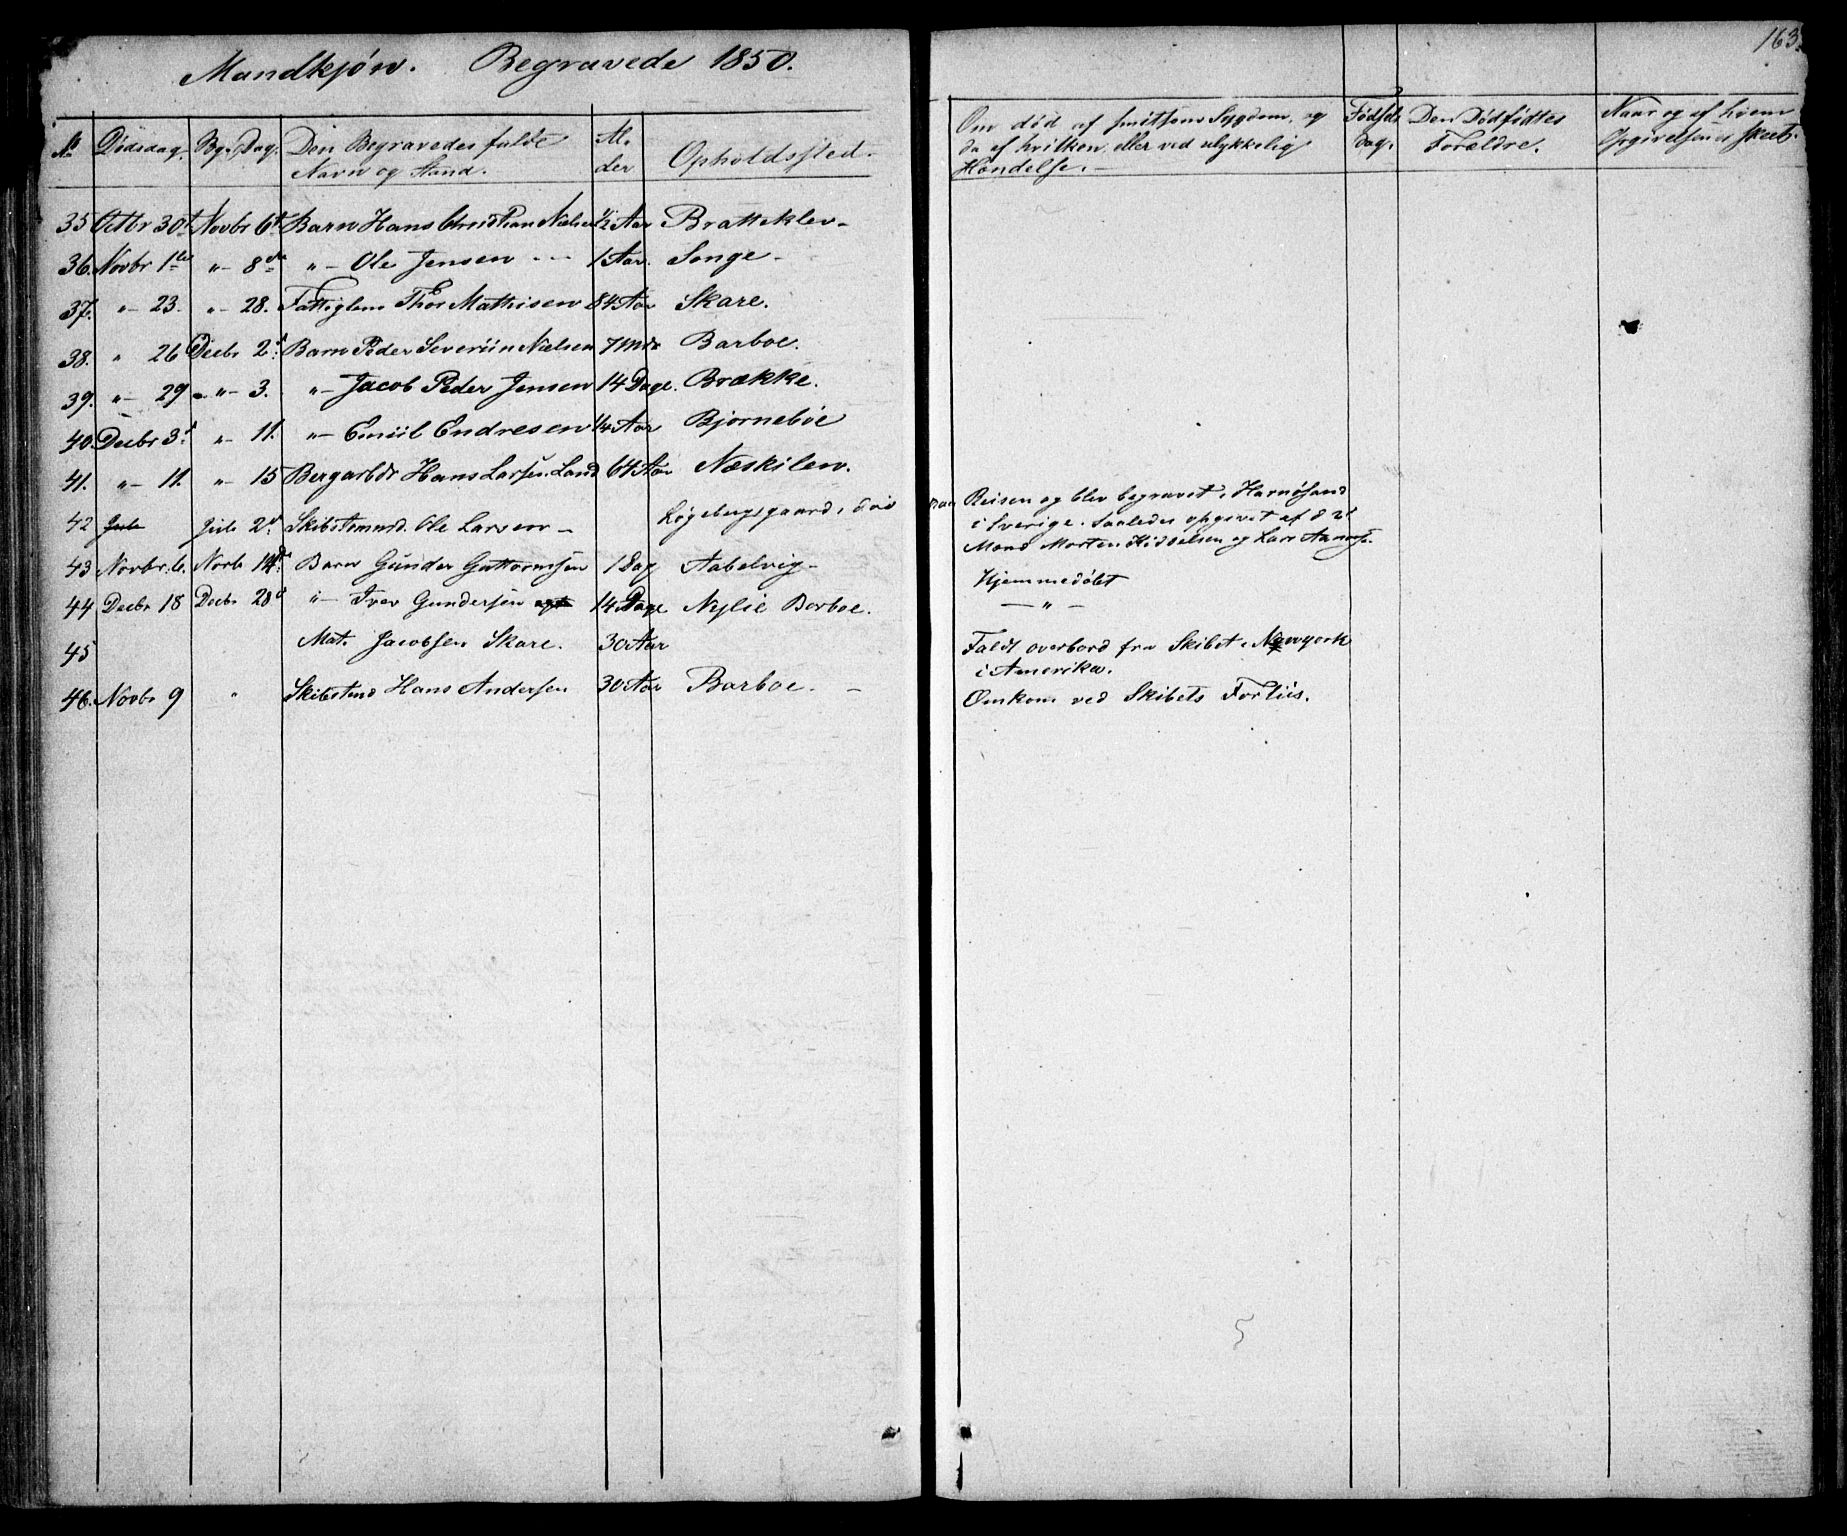 163.
Mandkjøn. Begravede 1850.
No Dødsdag. Bgr. Dag. Den Begravedes fulde Navn og Stand. Al-der Opholdssted. Om død af smitsom Sygdom, og da af hvilken, eller ved ulykkelig Hændelse. Fødselsdag. Den Dødfødtes Forældre. Naar og af hvem Opgivelsen er skeet.
35 Octbr 30t Novbr 6t Barn Hans Christian Nielsen 1/2 Aar Bratteklev
36. Novbr 1ste " 8de " Ole Jensen 1 Aar. Songe
37. " 23. " 28. Fattiglem Thor Mathisen 84 Aar Skare.
38. " 26 Decbr 2d Barn Peder Severiin Nielsen 7 Mdr Barboe.
39. " 29 " 3. " Jacob Peder Jensen 14 Dage. Brække.
40. Decbr 3d " 11. " Emiil Endresen 1/4 Aar Bjornebøe
41. " 11. " 15 Bergarbdr Hans Larsen Land 64 Aar Næskilen.
42 Jule Jule 2d Skibstmmd. Ole Larsen Løgebergsgaard, døe paa Reisen og blev begravet i Harnøsand
i Sverige. Saaledes opgivet af d 2de
Mænd Morten Kiddelsen og Lars
43 Novbr. 6. Norb 14de Barn Gunder Guttormsen 1 Dag Aabelvig Hjemmedøbt
44 Decbr 18 Decbr 28d " Iver Gundersen 14 Dage Nylie Barboe. "
45 Mat. Jacobsen Skare. 30 Aar Faldt overbord fra Skibet i Newyork
i Amerika.
46. Novbr 9 " Skibstmd Hans Andersen 30 Aar Barboe. Omkom ved Skibets Forliis.
5